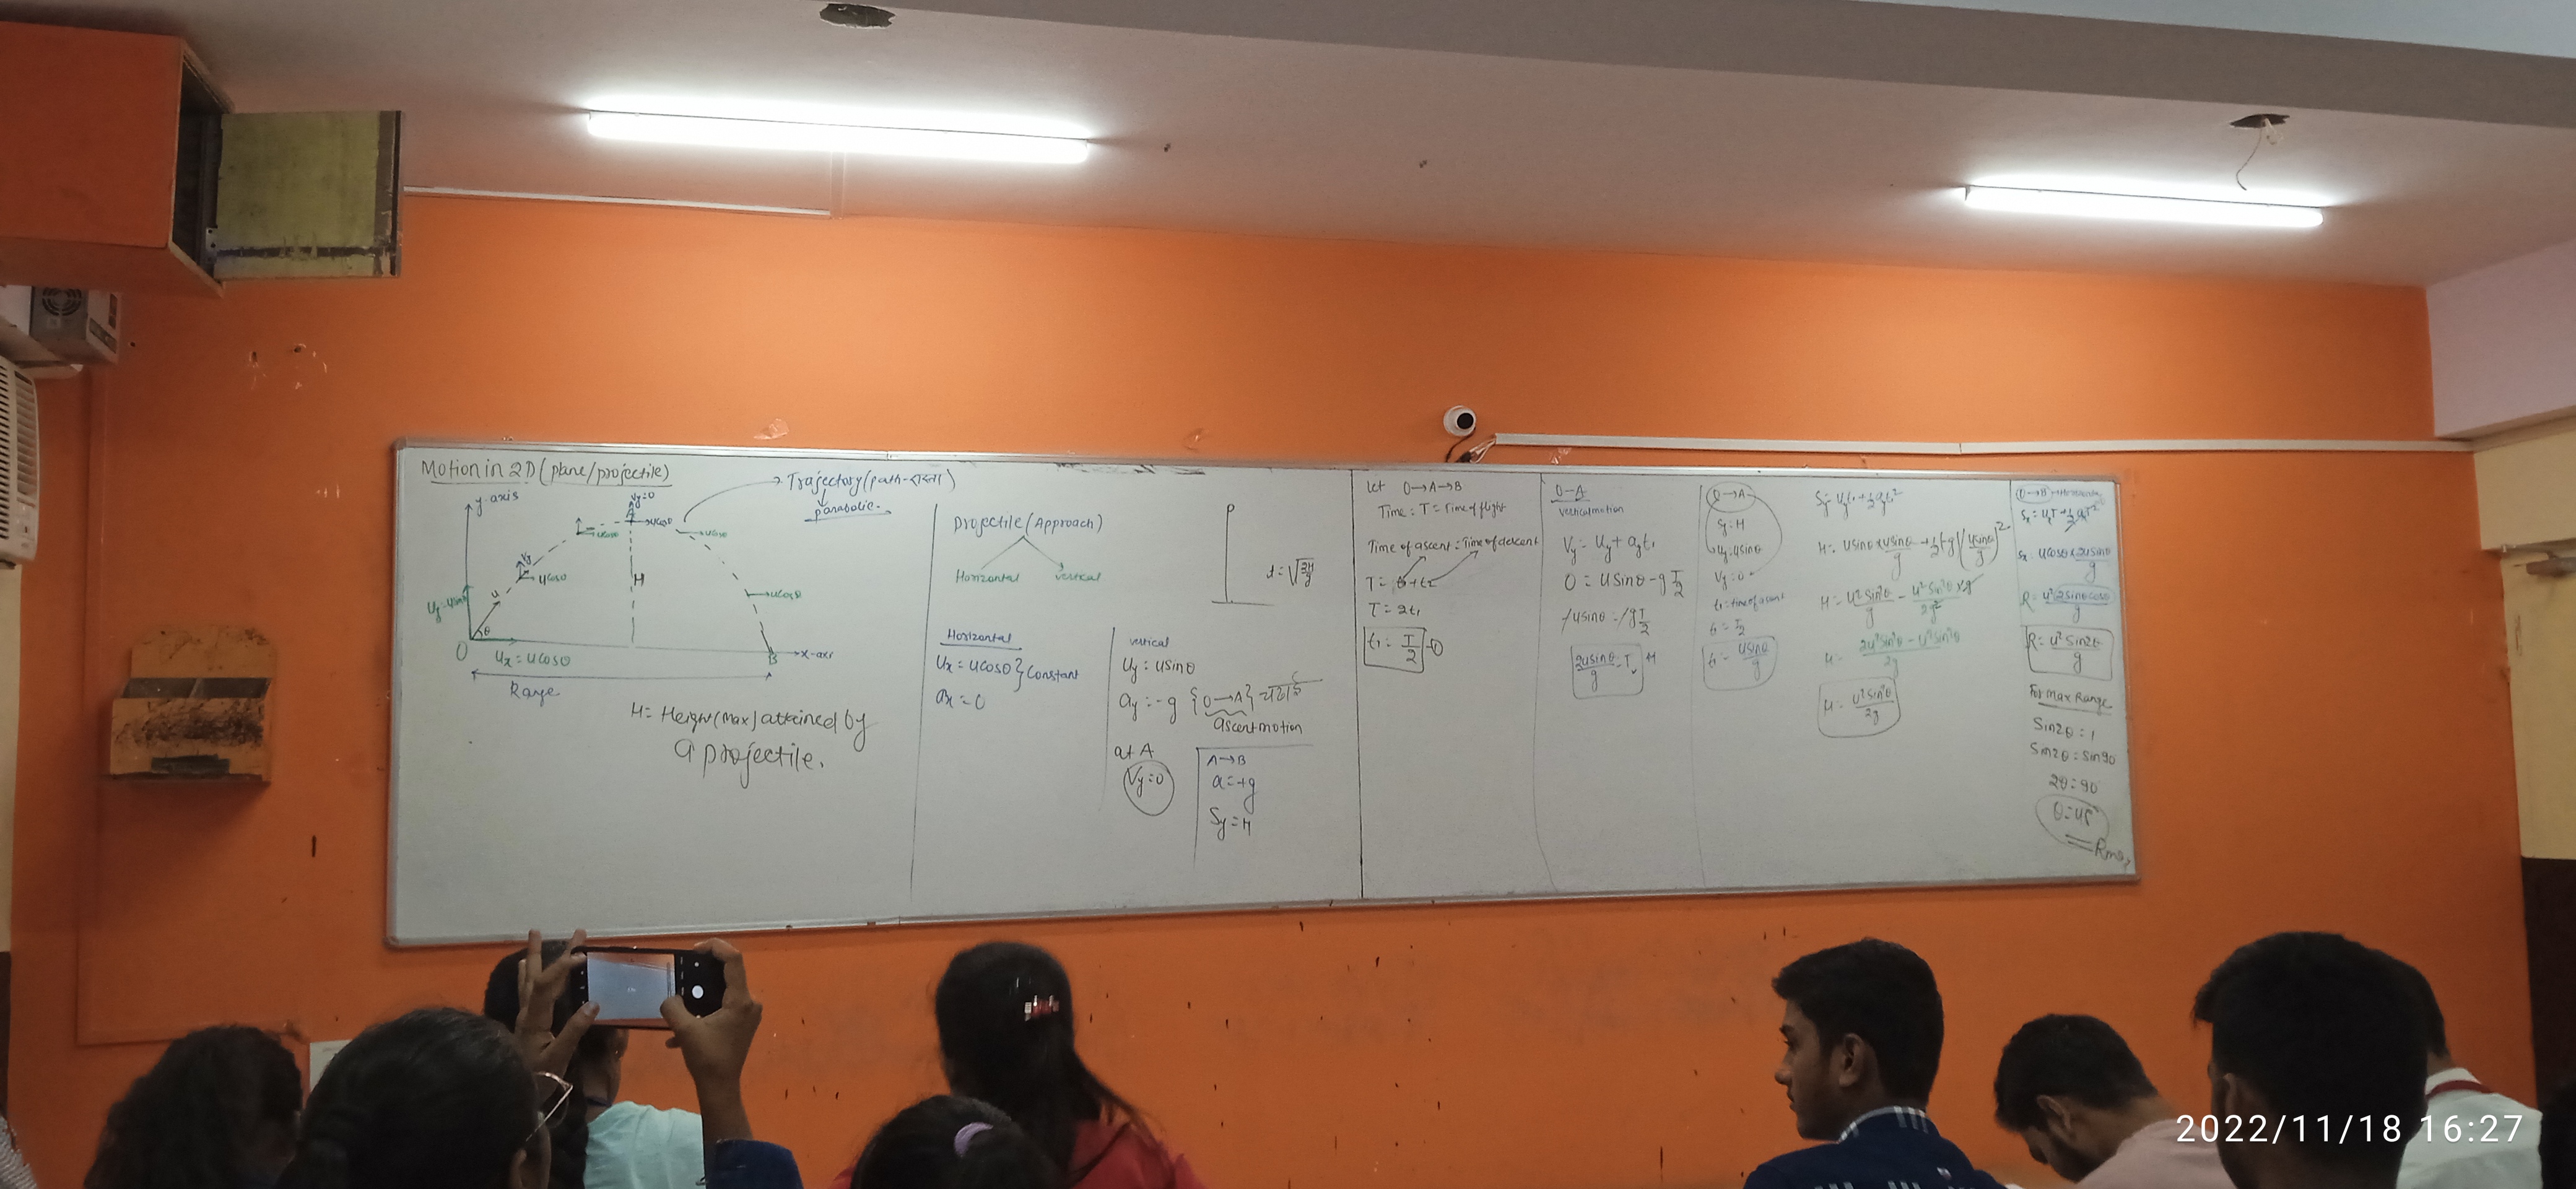 Motion in 2D (plane/projectile)
y-axis
Vy=0
A
ucosθ
ucosθ
ucosθ
Vy
ucosθ
H
ucosθ
Uy=usinθ
u
θ
O
Ux = ucosθ
B
x-axis
Range
H = Height (max) attained by
a projectile.
Trajectory (path-रास्ता)
parabolic.
projectile (Approach)
Horizontal
vertical
t = √(2H/g)
Horizontal
Ux = ucosθ } Constant
ax = 0
vertical
Uy = usinθ
ay = -g {O→A}
ascent motion
at A
Vy=0
A→B
a = +g
Sy = H
Let O→A→B
Time: T = Time of flight
Time of ascent = Time of descent
T = t1 + t2
T = 2t1
t1 = T/2 -①
O-A
vertical motion
Vy = Uy + ay t1
0 = usinθ - g T/2
-usinθ = -g T/2
2usinθ/g = T
O→A
Sy = H
Uy = usinθ
Vy = 0
t1 = time of ascent
t1 = T/2
t1 = usinθ/g
Sy = Uy t1 + 1/2 ay t1²
H = usinθ × usinθ/g + 1/2 (-g) (usinθ/g)²
H = u²sin²θ/g - u²sin²θ × g/2g²
H = 2u²sin²θ - u²sin²θ/2g
H = u²sin²θ/2g
O→B → Horizontal
Sx = Ux T + 1/2 ax T²
Sx = ucosθ × 2usinθ/g
R = u²(2sinθcosθ)/g
R = u²sin2θ/g
For Max Range
Sin2θ = 1
Sin2θ = sin90
2θ = 90
θ = 45°
Rmax
2022/11/18 16:27